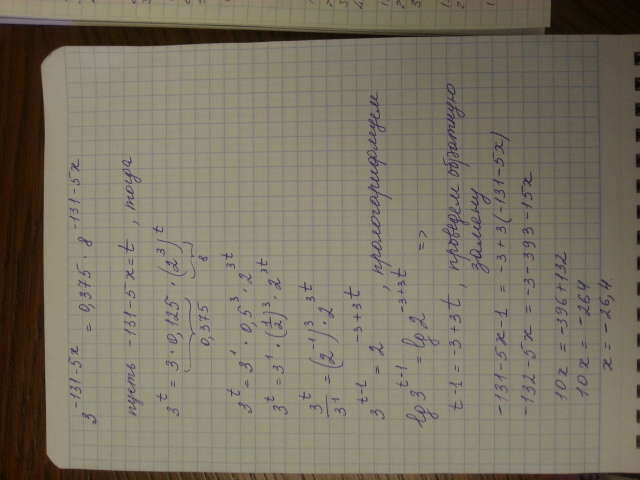 3^{-131-5x} = 0,375 · 8^{-131-5x}
пусть -131-5x=t , тогда
3^t = 3 · 0,125 · (2^3)^t
0,375 8
3^t = 3^1 · 0,5^3 · 2^{3t}
3^t = 3^1 · (1/2)^3 · 2^{3t}
3^t/3^1 = (2^{-1})^3 · 2^{3t}
3^{t-1} = 2^{-3+3t} , прологарифмируем
lg 3^{t-1} = lg 2^{-3+3t} =>
t-1 = -3+3t , проведем обратную
замену
-131-5x-1 = -3+3(-131-5x)
-132-5x = -3-393-15x
10x = -396+132
10x = -264
x = -26,4